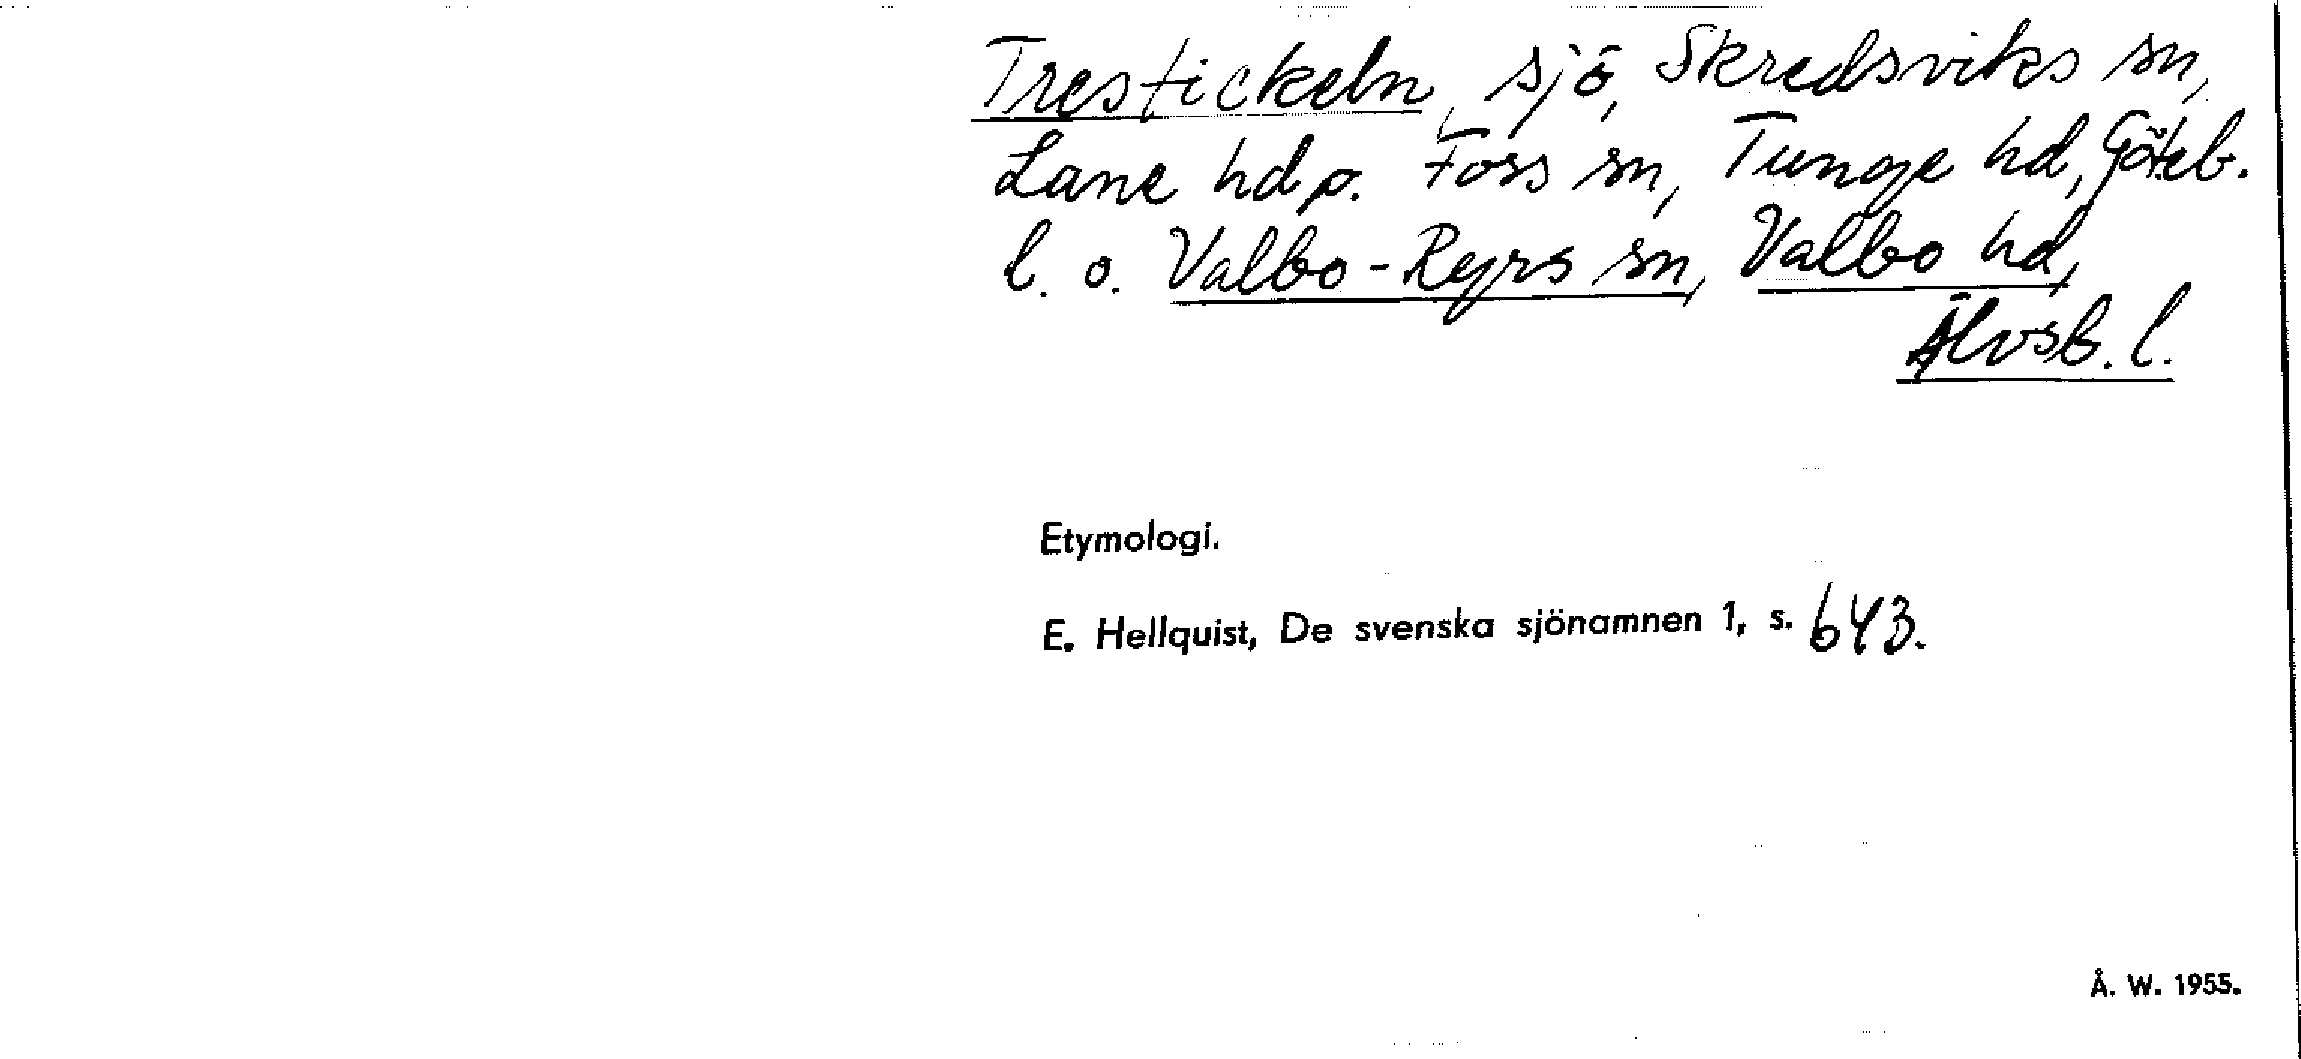 Trestickeln, sjö, Skredsviks sn,
Lane hd o. Foss sn, Tunge hd, Göteb.
l. o. Valbo-Ryrs sn, Valbo hd,
Älvsb. l.
Etymologi.
E. Hellquist, De svenska sjönamnen 1, s. 643.
Å. W. 1955.